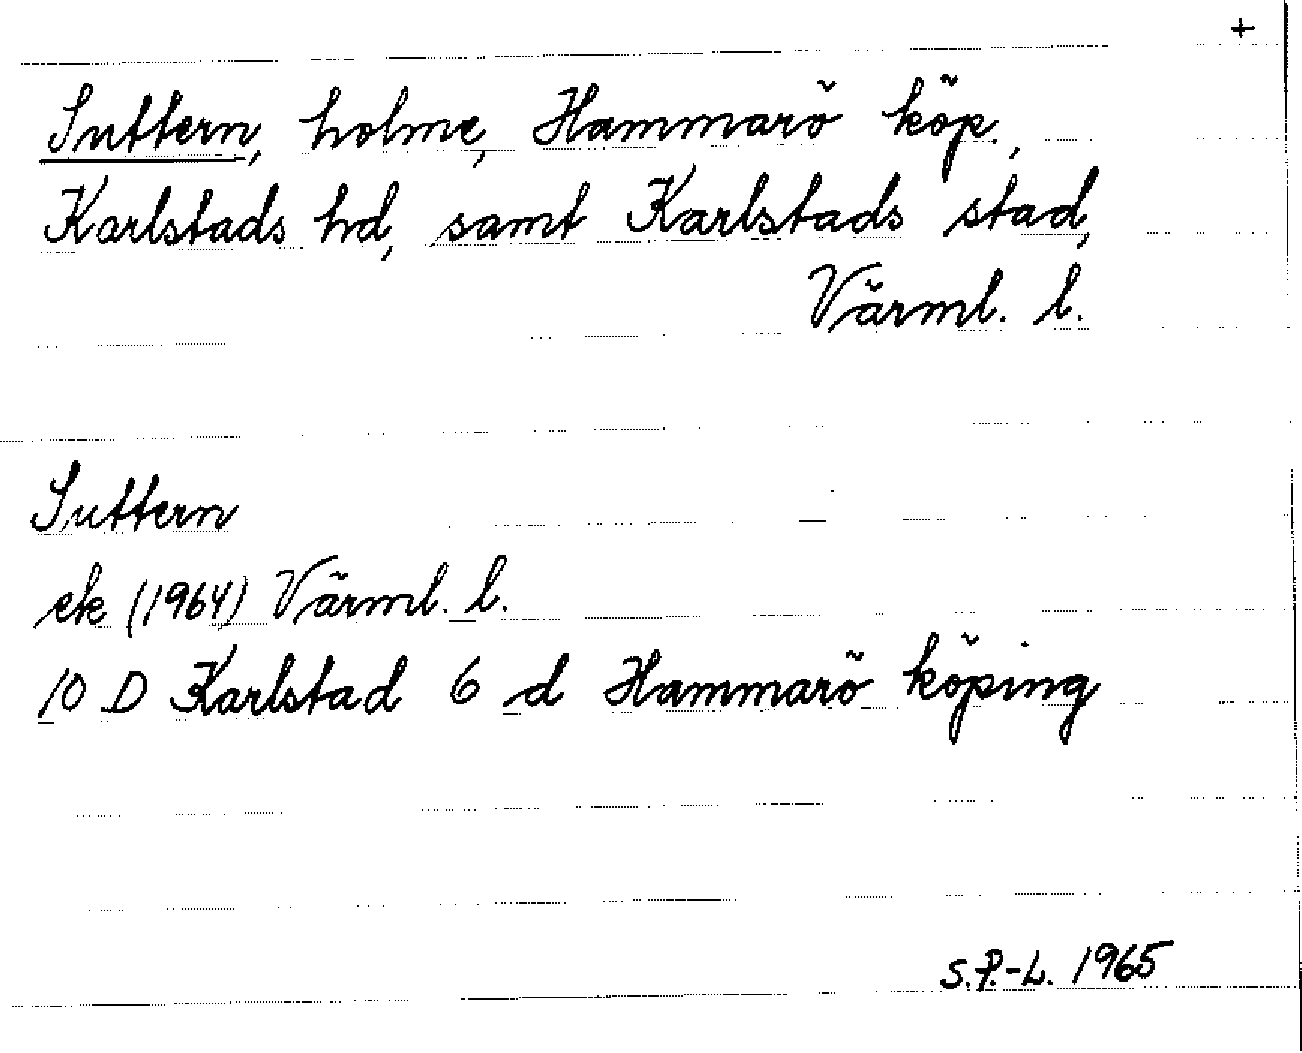 +
Suttern, holme, Hammarö köp.,
Karlstads hd, samt Karlstads stad,
Värml. l.
Suttern
ek (1964) Värml. l.
10 D Karlstad 6 d Hammarö köping
S.P.-L. 1965